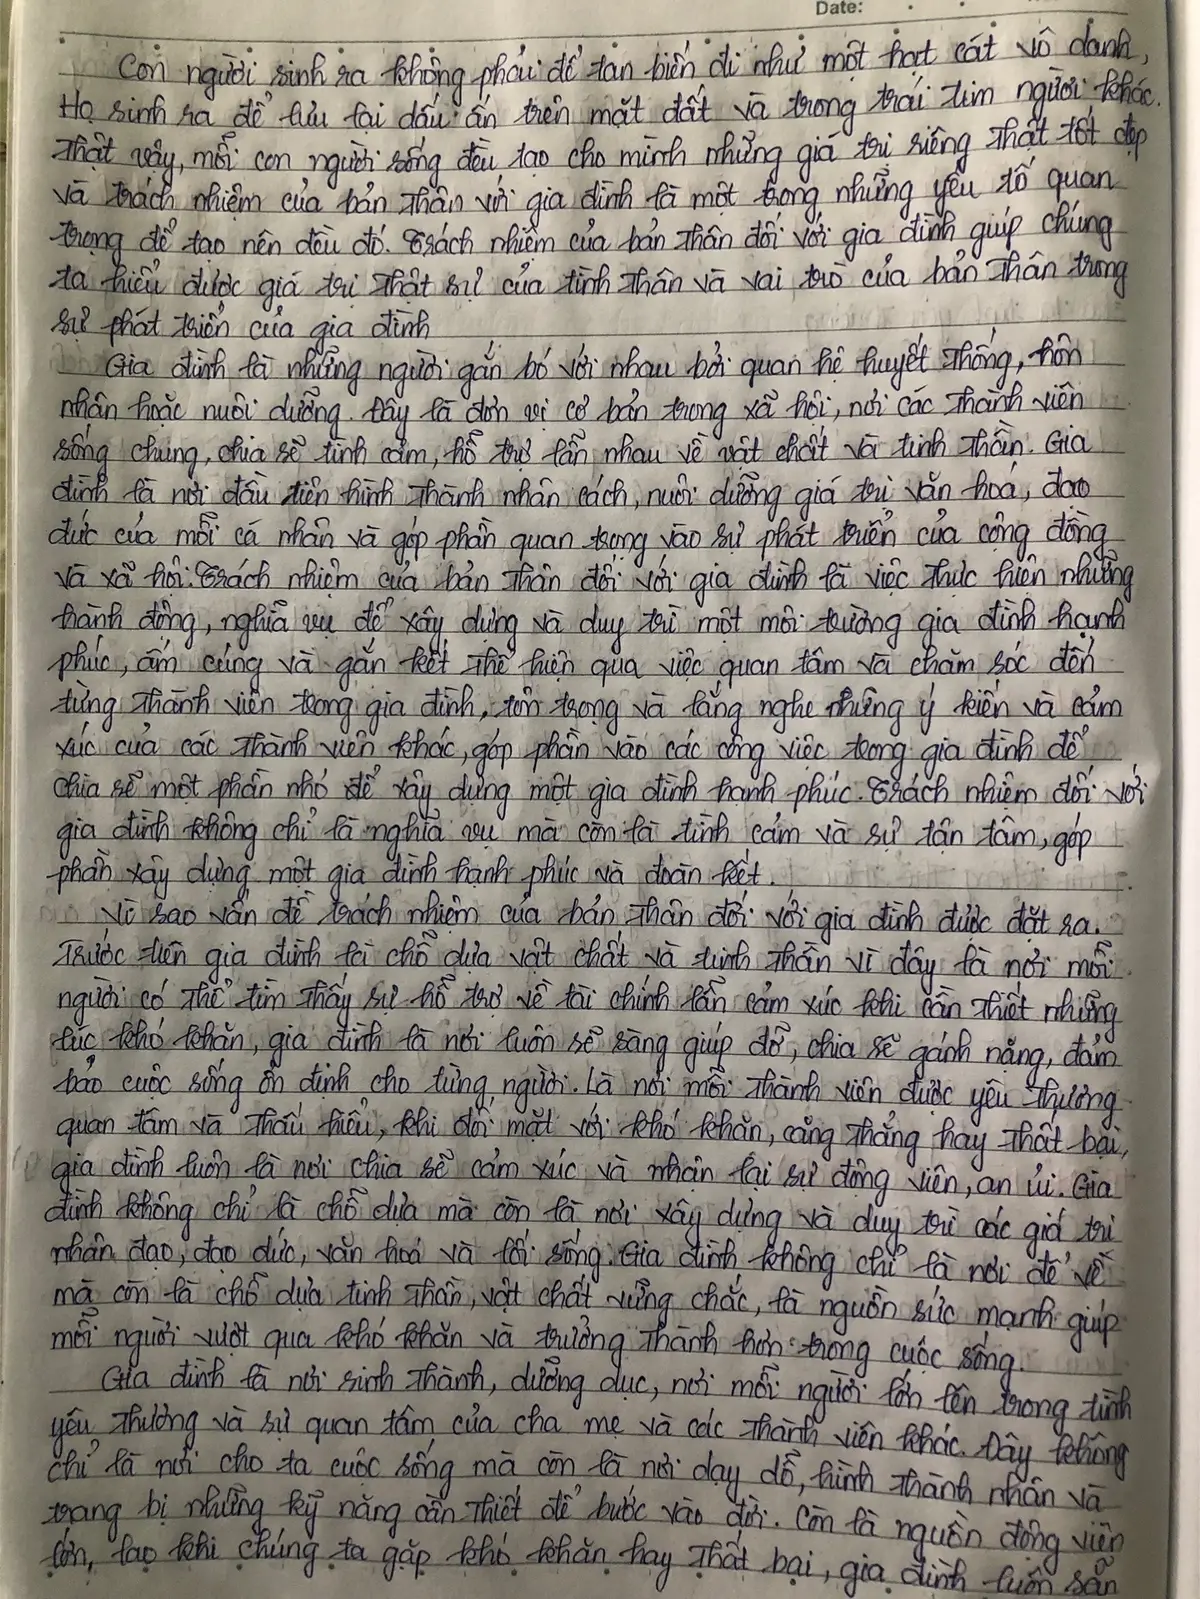 Date:
Con người sinh ra không phải để tan biến đi như một hạt cát vô danh,
Họ sinh ra để lưu lại dấu ấn trên mặt đất và trong trái tim người khác.
Thật vậy, mỗi con người sống đều tạo cho mình những giá trị riêng thật tốt đẹp
và trách nhiệm của bản thân với gia đình là một trong những yếu tố quan
trọng để tạo nên đều đó. Trách nhiệm của bản thân đối với gia đình giúp chúng
ta hiểu được giá trị thật sự của tình thân và vai trò của bản thân trong
sự phát triển của gia đình
Gia đình là những người gắn bó với nhau bởi quan hệ huyết thống, hôn
nhân hoặc nuôi dưỡng. Đây là đơn vị cơ bản trong xã hội, nơi các thành viên
sống chung, chia sẽ tình cảm, hỗ trợ lẫn nhau về vật chất và tinh thần. Gia
đình là nơi đầu tiên hình thành nhân cách, nuôi dưỡng giá trị văn hoá, đạo
đức của mỗi cá nhân và góp phần quan trọng vào sự phát triển của cộng đồng
và xã hội. Trách nhiệm của bản thân đối với gia đình là việc thực hiện những
hành động, nghĩa vụ để xây dựng và duy trì một môi trường gia đình hạnh
phúc, ấm cúng và gắn kết thể hiện qua việc quan tâm và chăm sóc đến
từng thành viên trong gia đình, tôn trọng và lắng nghe những ý kiến và cảm
xúc của các thành viên khác, góp phần vào các công việc trong gia đình để
chia sẽ một phần nhỏ để xây dựng một gia đình hạnh phúc. Trách nhiệm đối với
gia đình không chỉ là nghĩa vụ mà còn là tình cảm và sự tận tâm, góp
phần xây dựng một gia đình hạnh phúc và đoàn kết.
Vì sao vấn đề trách nhiệm của bản thân đối với gia đình được đặt ra.
Trước tiên gia đình là chỗ dựa vật chất và tinh thần vì đây là nơi mỗi
người có thể tìm thấy sự hỗ trợ về tài chính lẫn cảm xúc khi cần thiết những
lúc khó khăn, gia đình là nơi luôn sẽ sàng giúp đỡ, chia sẽ gánh nặng, đảm
bảo cuộc sống ổn định cho từng người. Là nơi mỗi thành viên được yêu thương
quan tâm và thấu hiểu, khi đối mặt với khó khăn, căng thẳng hay thất bại,
gia đình luôn là nơi chia sẽ cảm xúc và nhận lại sự động viên, an ủi. Gia
đình không chỉ là chỗ dựa mà còn là nơi xây dựng và duy trì các giá trị
nhân đạo, đạo đức, văn hoá và lối sống. Gia đình không chỉ là nơi để về
mà còn là chỗ dựa tinh thần, vật chất vững chắc, là nguồn sức mạnh giúp
mỗi người vượt qua khó khăn và trưởng thành hơn trong cuộc sống.
Gia đình là nơi sinh thành, dưỡng dục, nơi mỗi người lớn lên trong tình
yêu thương và sự quan tâm của cha mẹ và các thành viên khác. Đây không
chỉ là nơi cho ta cuộc sống mà còn là nơi dạy dỗ, hình thành nhân và
trang bị những kỹ năng cần thiết để bước vào đời. Còn là nguồn động viên
lớn, lao khi chúng ta gặp khó khăn hay thất bại, gia đình luôn sẵn